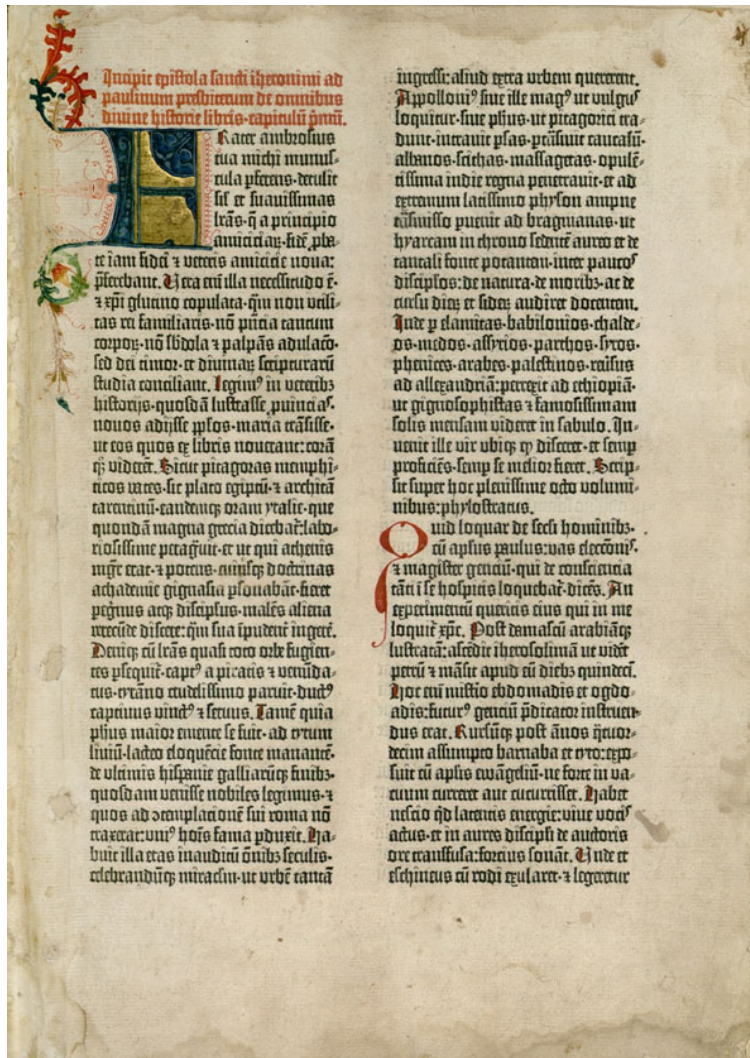 Incipit epistola sancti iheronimi ad
paulinum presbiterum de omnibus
divine historie libris·capitulū p̄mū.
Frater ambrosius
tua michi munus-
cula ꝑferens·detulit
sił et suavissimas
lrās·q̄ a principio
amiciciaꝝ·fidē ꝓba-
te iam fidei ⁊ veteris amicicie nova:
p̄ferebant. Vera enī illa necessitudo ē·
⁊ xp̄i glutino copulata·qm̄ non utili-
tas rei familiaris·nō p̄ncia tantum
corpoꝝ·nō s̄bdola ⁊ palpās adulacō·
sed dei timor·et divinaꝝ scripturarū
studia conciliant. Legimꝰ in veteribꝫ
historijs·quosdā lustrasse ꝓuinciaˢ·
novos adijsse pplos·maria trāsisse·
ut eos quos ex libris noverant:corā
qꝫ viderēt. Sicut pitagoras memphi-
ticos vates·sic plato egiptū·⁊ architā
tarentinū·eandemqꝫ oram ytalie·que
quondā magna grecia dicebat̄:labo-
riosissime peragᷓvit·et ut qui athenis
mgr̄ erat·⁊ potens·cuiusqꝫ doctrinas
achademie gignasia ꝑsonabāt·fieret
peg̊nus atqꝫ discipulus·malēs aliena
verecūde discere:qm̄ sua īpudent̄ ingerē.
Deniqꝫ cū lrās quasi toto orbe fugien-
tes ꝑsequit̄·captꝰ a piratis ⁊ venūda-
tus·tyrāno crudelissimo paruit·ductꝰ
captivus vinctꝰ ⁊ servus. Tamē quia
ph̄us maior emente se fuit·ad tytum
liviū·lacteo eloquēcie fonte manantē·
de ultimis hispanie galliarūqꝫ finibꝫ·
quosdam venisse nobiles legimus·⁊
quos ad ↄtemplacionē sui roma nō
traxerat:uniꝰ hoīs fama ꝑduxit. Ha-
buit illa etas inauditū ōnibꝫ seculis·
celebrandūqꝫ miraclm̄·ut urbē tantā
ingressi:aliud extra urbem quererent.
Appolloniꝰ sive ille magꝰ ut vulgusˢ
loquitur·sive ph̄us·ut pitagorici tra-
dunt·intravit ꝑsas·ꝑtrāsivit caucasū·
albanos·scithas·massagetas·opulē-
tissima indie regna penetravit·et ad
extremum latissimo physon ampne
trāsmisso ꝑvenit ad bragmanas·ut
hyarcam in throno sedentē aureo et de
tantali fonte potantem·inter paucoˢ
discipulos:de natura·de moribꝫ·ac de
cursu dieꝝ et sideꝝ audiret docentem.
Inde ꝑ elamitas·babilonios·chalde-
os·medos·assyrios·parthos·syros·
phenices·arabes·palestinos·reūsus
ad allexandriā:perrexit ad ethiopiā·
ut gignosophistas ⁊ famosissimam
solis mensam videret in sabulo. In-
venit ille vir ubiqꝫ qꝫ disceret·et semꝑ
proficiēs·semꝑ se melior fieret. Scrip-
sit super hoc plenissime octo volumi-
nibus:phylostratus.
Quid loquar de seculi hominibꝫ·
cū apl̄us paulus:vas eleccōiˢ·
⁊ magister genciū·qui de consciencia
tāti ī se hospitis loquebat̄·dicēs. An
experimentū queritis eius qui in me
loquit̄ xp̄c. Post damascū arabiāqꝫ
lustratā:ascēdit iherosolimā ut vidēt
petrū ⁊ māsit apud eū diebꝫ quindeci.
Hoc enī mistio ebdomadis et ogdo-
adis:futurꝰ genciū p̄dicator instruen-
dus erat. Rursūqꝫ post ānos q̄tuor-
decim assumpto barnaba et tyto:expo-
suit cū apl̄is ewāgeliū·ne forte in va-
cuum curreret aut cucurrisset. Habet
nescio qd̄ latentis energie:vive vociˢ
actus·et in aures discipuli de auctoris
ore transfusa:forcius sonat̄. Unde et
eschineus cū rodi exularet·⁊ legeretur